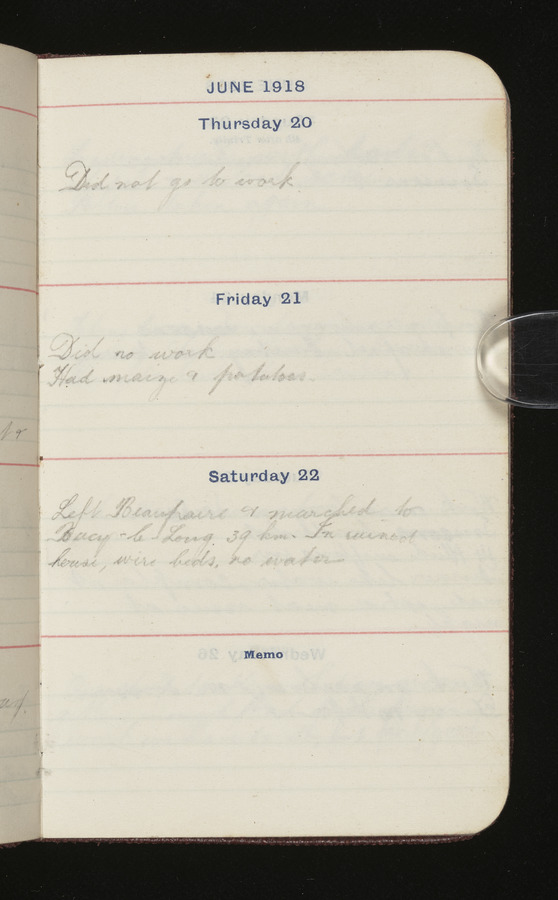 JUNE 1918
Thursday 20
Did not go to work
Friday 21
Did no work
Had maize & potatoes.
Saturday 22
Left Beaufaire & marched to
Bucy-le-Long. 39 km. In ruined
house, wire beds, no water
Memo